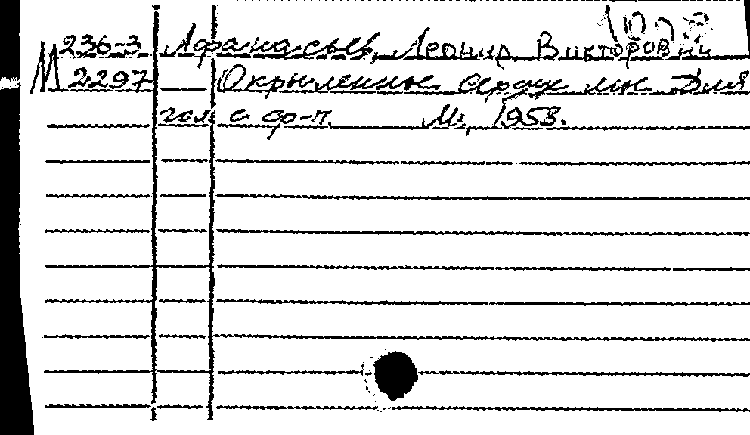 М 236-3 Афанасьев, Леонид Викторович
2297 Окрыленное сердце мне Для
гол с ф-п. М., 1953.